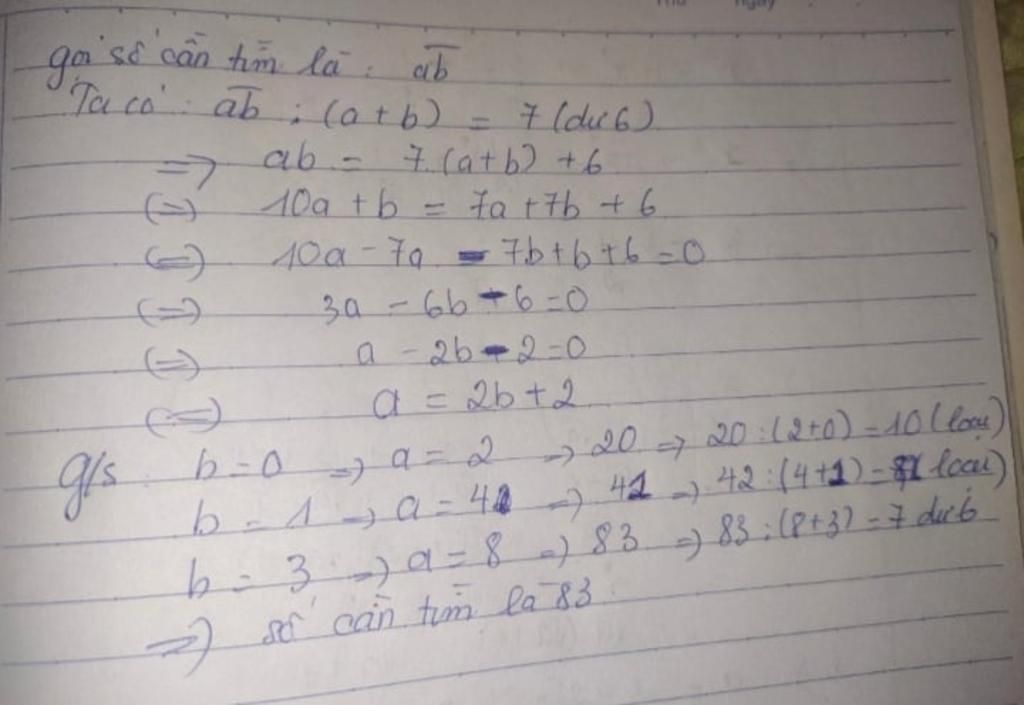 gọi số cần tìm là: ab
Ta có: ab : (a+b) = 7 (dư 6)
=> ab = 7(a+b)+6
(=) 10a+b = 7a+7b+6
(=) 10a-7a-7b+b+6=0
(=) 3a-6b-6=0
(=) a-2b-2=0
(=) a=2b+2
g/s: b=0 => a=2 => 20 => 20:(2+0)=10 (loại)
b=1 => a=4 => 41 => 42:(4+1)= loại)
b=3 => a=8 => 83 => 83:(8+3)=7 dư 6
=> số cần tìm là 83